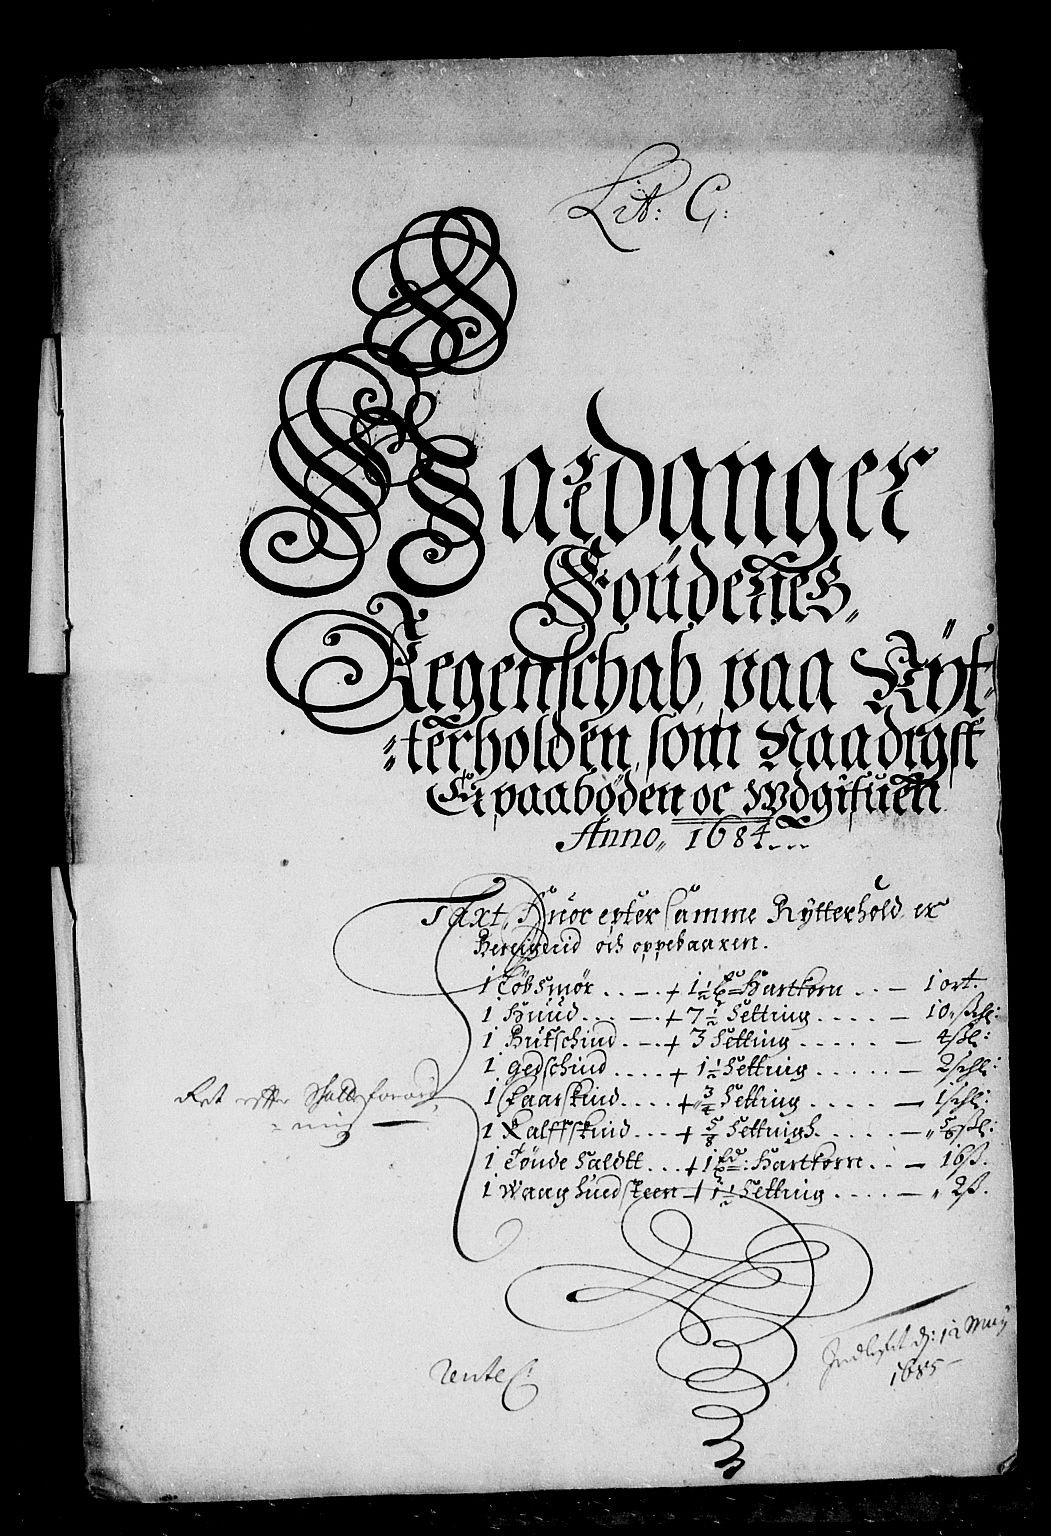 Lit: G:
Hardanger
Foüdenes
Regenschab, paa Rÿt-
terholden, som Naadigst
Er paabøden oc Wdgifuen
Anno, 1684...
Taxt, Huor epter samme Rÿtterhold er
Bereignid och oppebaaren.
1 Løbsmør ... + 1½ Hartkorn ... 1 ort.
1 Huud ... + 7½ Setting .... 10 schl:
1 Bukschind ... + 3 Setting ..... 4 sl:
1 Gedschind .... + 1½ Setting ..... 2 schl:
1 Faarskind .... + ¾ Setting .... 1 schl:
1 Kalffskind ... + ⅝ Settingh ..... ⅝ sl:
1 Tønde Saldtt ... + 1 Hartkorn ... 16 ß.
1 Waag huedsteen + 1½ Setting .... 2 ß.
Ret efter
Indlefvert d: 12 Maÿ
1685